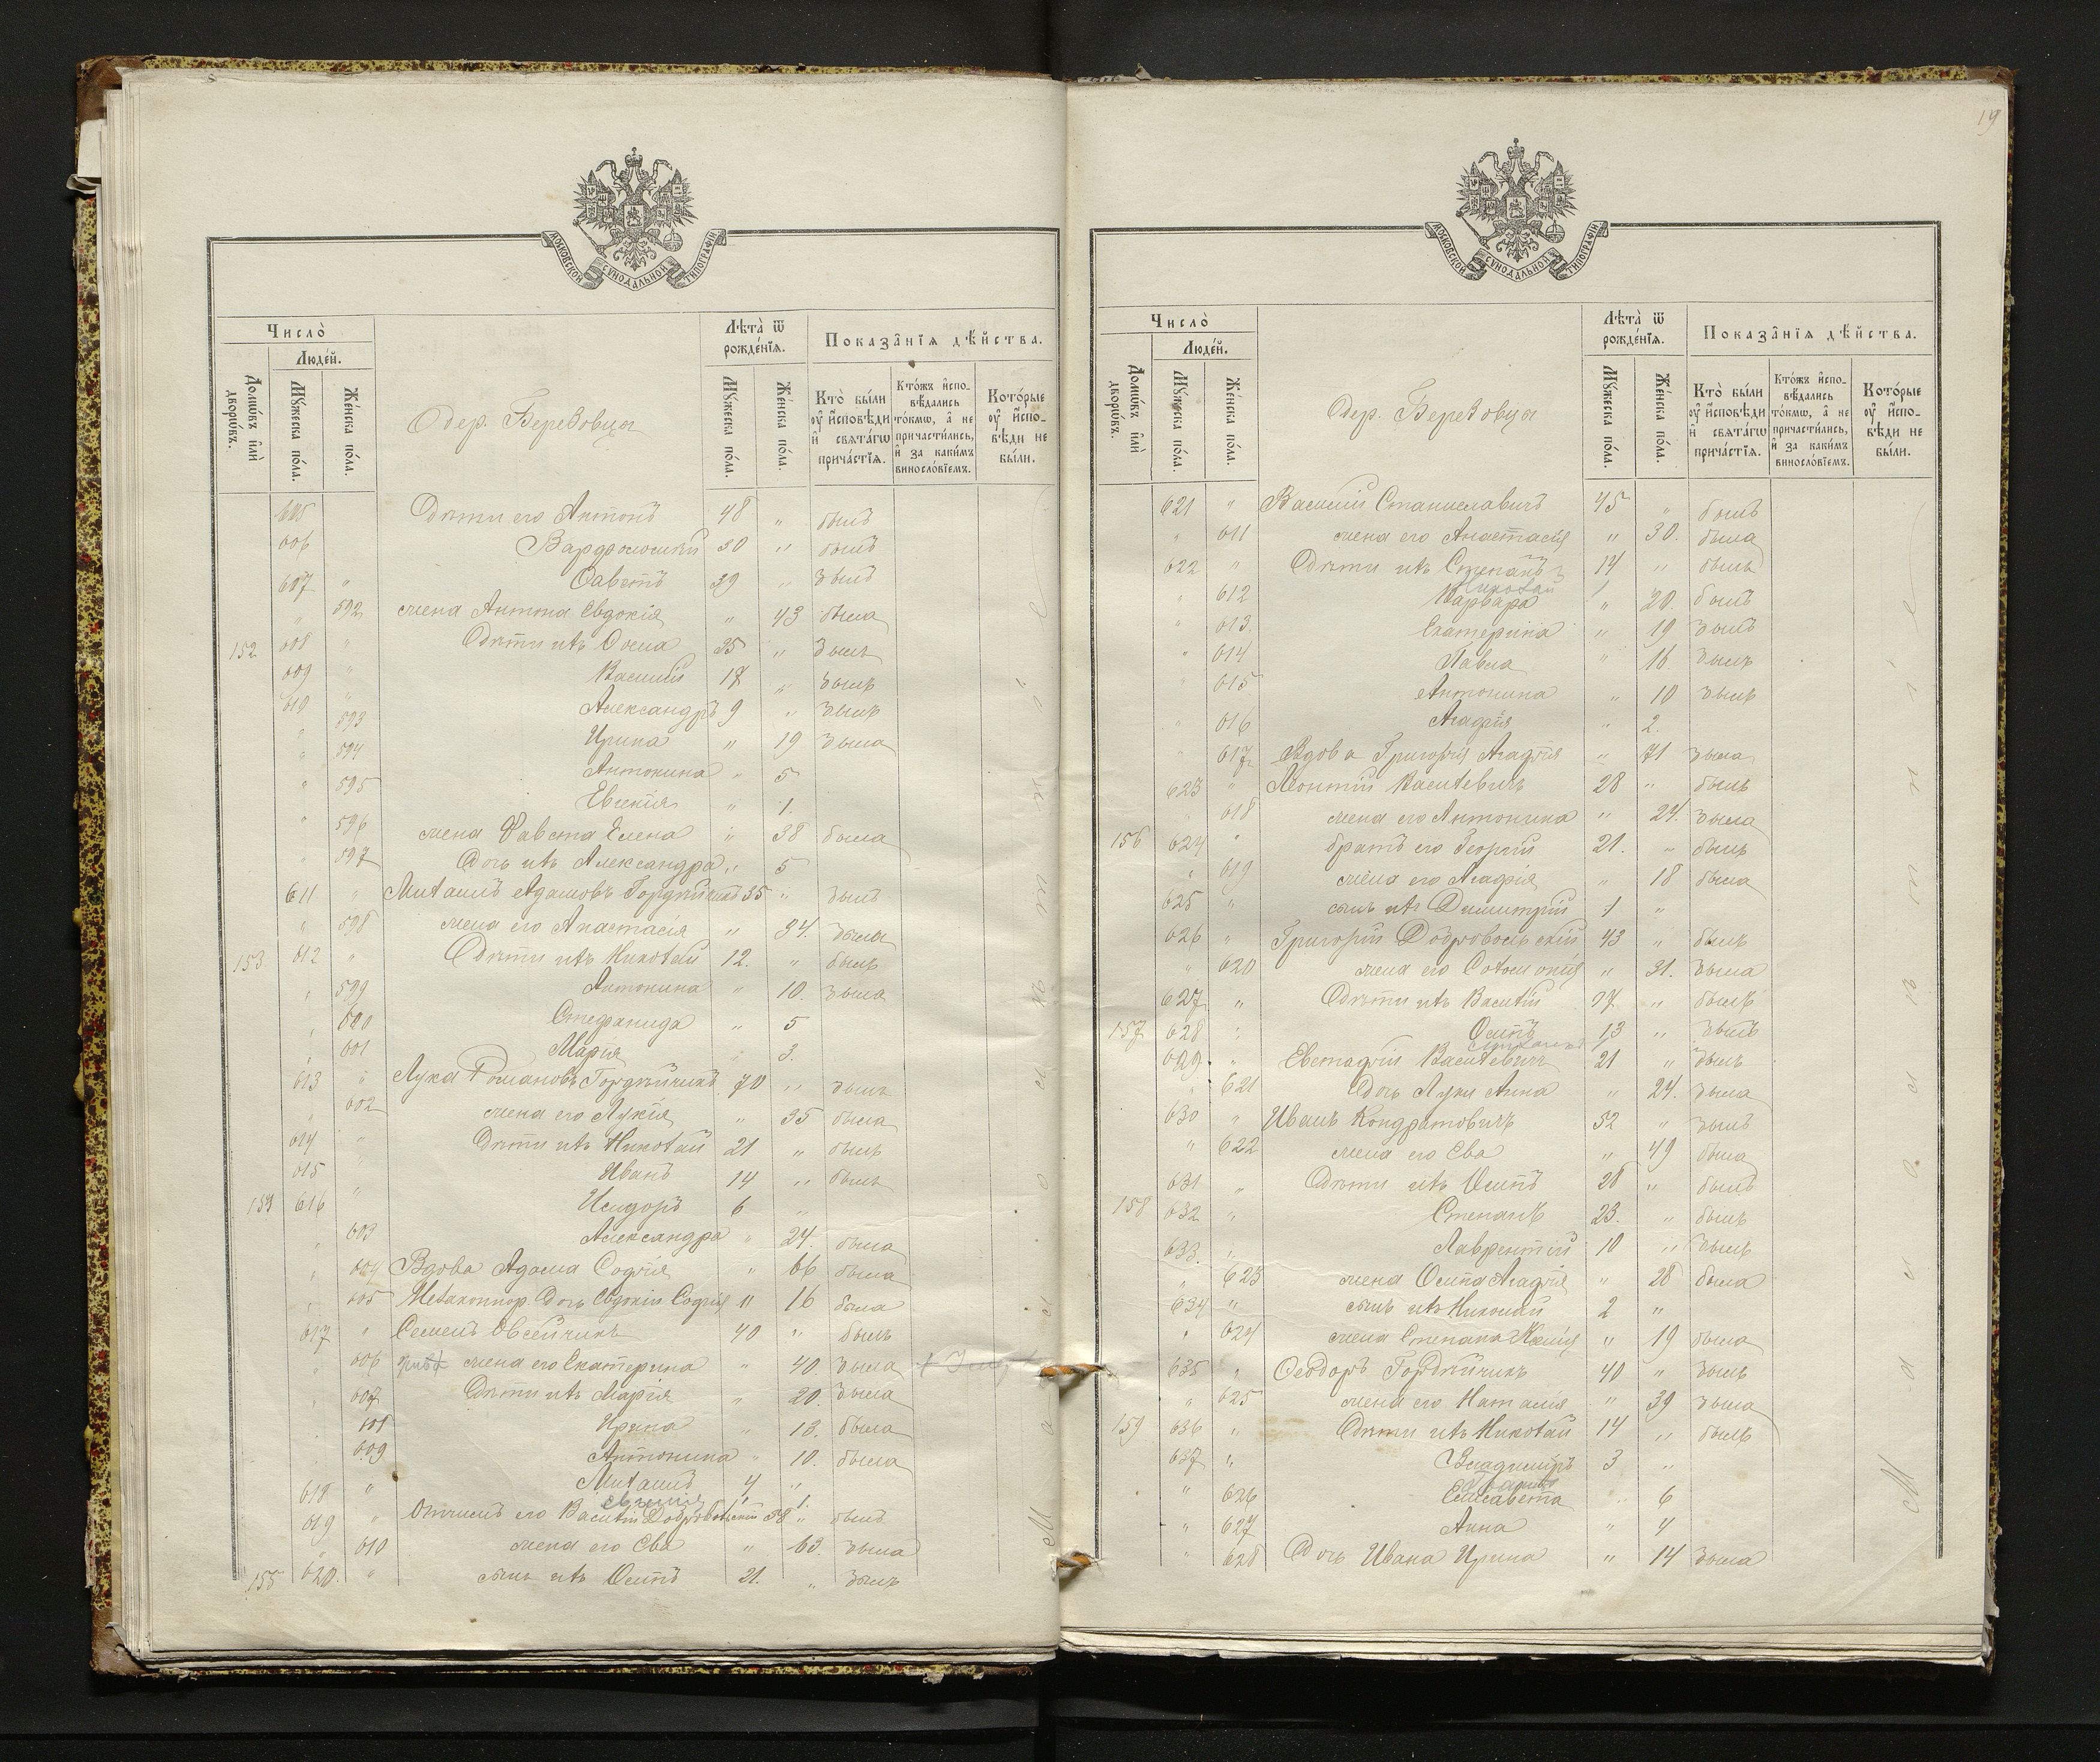 МОСКОВСКОЙ СѴНОДАЛЬНОЙ ТИПОГРАФІИ
Число̀
Людей.
Домѡвъ или дворѡвъ.
Мужеска пола.
Женска пола.
Дер. Березовца
Лѣта̀ ѿ рожденїя.
Мужеска пола.
Женска пола.
Показанїя дѣйства.
Кто̀ были оу исповѣди и святагѡ причастїя.
Ктожъ исповѣдались токмѡ, а не причастились, и за какимъ винословїемъ.
Которые оу исповѣди не были.
605 Дѣти его Антонъ 48 " былъ
606 Варфоломей 30 " былъ
607 " Фавстъ 39 " былъ
" 592 жена Антона Евдокія " 43 была
152 608 " Дѣти ихъ Ѳома 25 " былъ
609 " Василій 17 " былъ
610 " Александръ 9 " былъ
" 593 Ирина " 19 была
" 594 Антонина " 5
" 595 Евгенія " 1.
" 596 жена Фавста Елена " 38 была
" 597 Дочь ихъ Александра " 5
611 " Михаилъ Адамовъ Гордѣйчикъ 35 " былъ
" 598 жена его Анастасія " 34. была
153 612 " Дѣти ихъ Николай 12. " былъ
" 599 Антонина " 10. была
" 600 Стефанида " 5
" 601 Марія " 3.
613 " Лука Романовъ Гордѣйчикъ 70 " былъ
" 602 жена его Лукія " 35 была
614 " Дѣти ихъ Николай 21 " былъ
615 " Иванъ 14 " былъ
154 616 " Исидоръ 6 "
" 603 Александра " 24. была
" 604 Вдова Адама Софія " 66 была
" 605 Дочь Евдокіи Софія " 16 была
617 " Семенъ Евсейчикъ 40 " былъ
" 606 жена его Екатерина " 40. была
" 607 Дѣти ихъ Марія " 20. была
Ирина " 13. была
609 Антонина " 10. была
618 " Михаилъ 4 "
Евгенія 1.
619 " Отчимъ его Василій Добровольскій 58 " былъ
" 610 жена его Ева " 63. была
155 620. " сынъ ихъ Осипъ 21. " былъ
19
МОСКОВСКОЙ СѴНОДАЛЬНОЙ ТИПОГРАФІИ
Число̀
Людей.
Домѡвъ или дворѡвъ.
Мужеска пола.
Женска пола.
Дер. Березовца
Лѣта̀ ѿ рожденїя.
Мужеска пола.
Женска пола.
Показанїя дѣйства.
Кто̀ были оу исповѣди и святагѡ причастїя.
Ктожъ исповѣдались токмѡ, а не причастились, и за какимъ винословїемъ.
Которые оу исповѣди не были.
621 " Василій Станиславичъ 45 " былъ
" 611 жена его Анастасія " 30. была
622 " Дѣти ихъ Степанъ 14 " былъ
Николай 1
" 612 Варвара " 20. былъ
" 613. Екатерина " 19 былъ
" 614 Павла " 16. былъ
" 615 Антонина " 10 былъ
" 616 Агафія " 2.
" 617 Вдова Григорія Агафія " 71 была
623 " Леонтій Василевичъ 28 " былъ
618 жена его Антонина " 24. была
156 624 " братъ его Георгій 21. " былъ
" 619 жена его Агафія " 18 была
625 " сынъ ихъ Димитрій 1 "
626 " Григорій Добровольскій 43 " былъ
" 620 жена его Соломонія " 31. была
627 " Дѣти ихъ Василій 17. " былъ
157 628 " Осипъ 13 " былъ
629 " Евстафій Василевичъ 21 " былъ
" 621 Дочь Луки Анна " 24. была
630 " Иванъ Кондратовичъ 52 " былъ
" 622 жена его Ева " 49 была
631 " Дѣти ихъ Осипъ 28 " былъ
158 632 " Степанъ 23. " былъ
633. " Лаврентій 10 " былъ
" 623 жена Осипа Агафія " 28 была
634 " сынъ ихъ Николай 2 "
" 624 жена Степана " 19 была
635 " Ѳеодоръ Гордѣйчикъ 40 " былъ
" 625 жена его Наталія " 39 была
159 636 " Дѣти ихъ Николай 14 " былъ
637 " Владиміръ 3 "
" 626 Елисавета " 6
" 627 Анна " 4
" 628 Дочь Ивана Ирина " 14 была